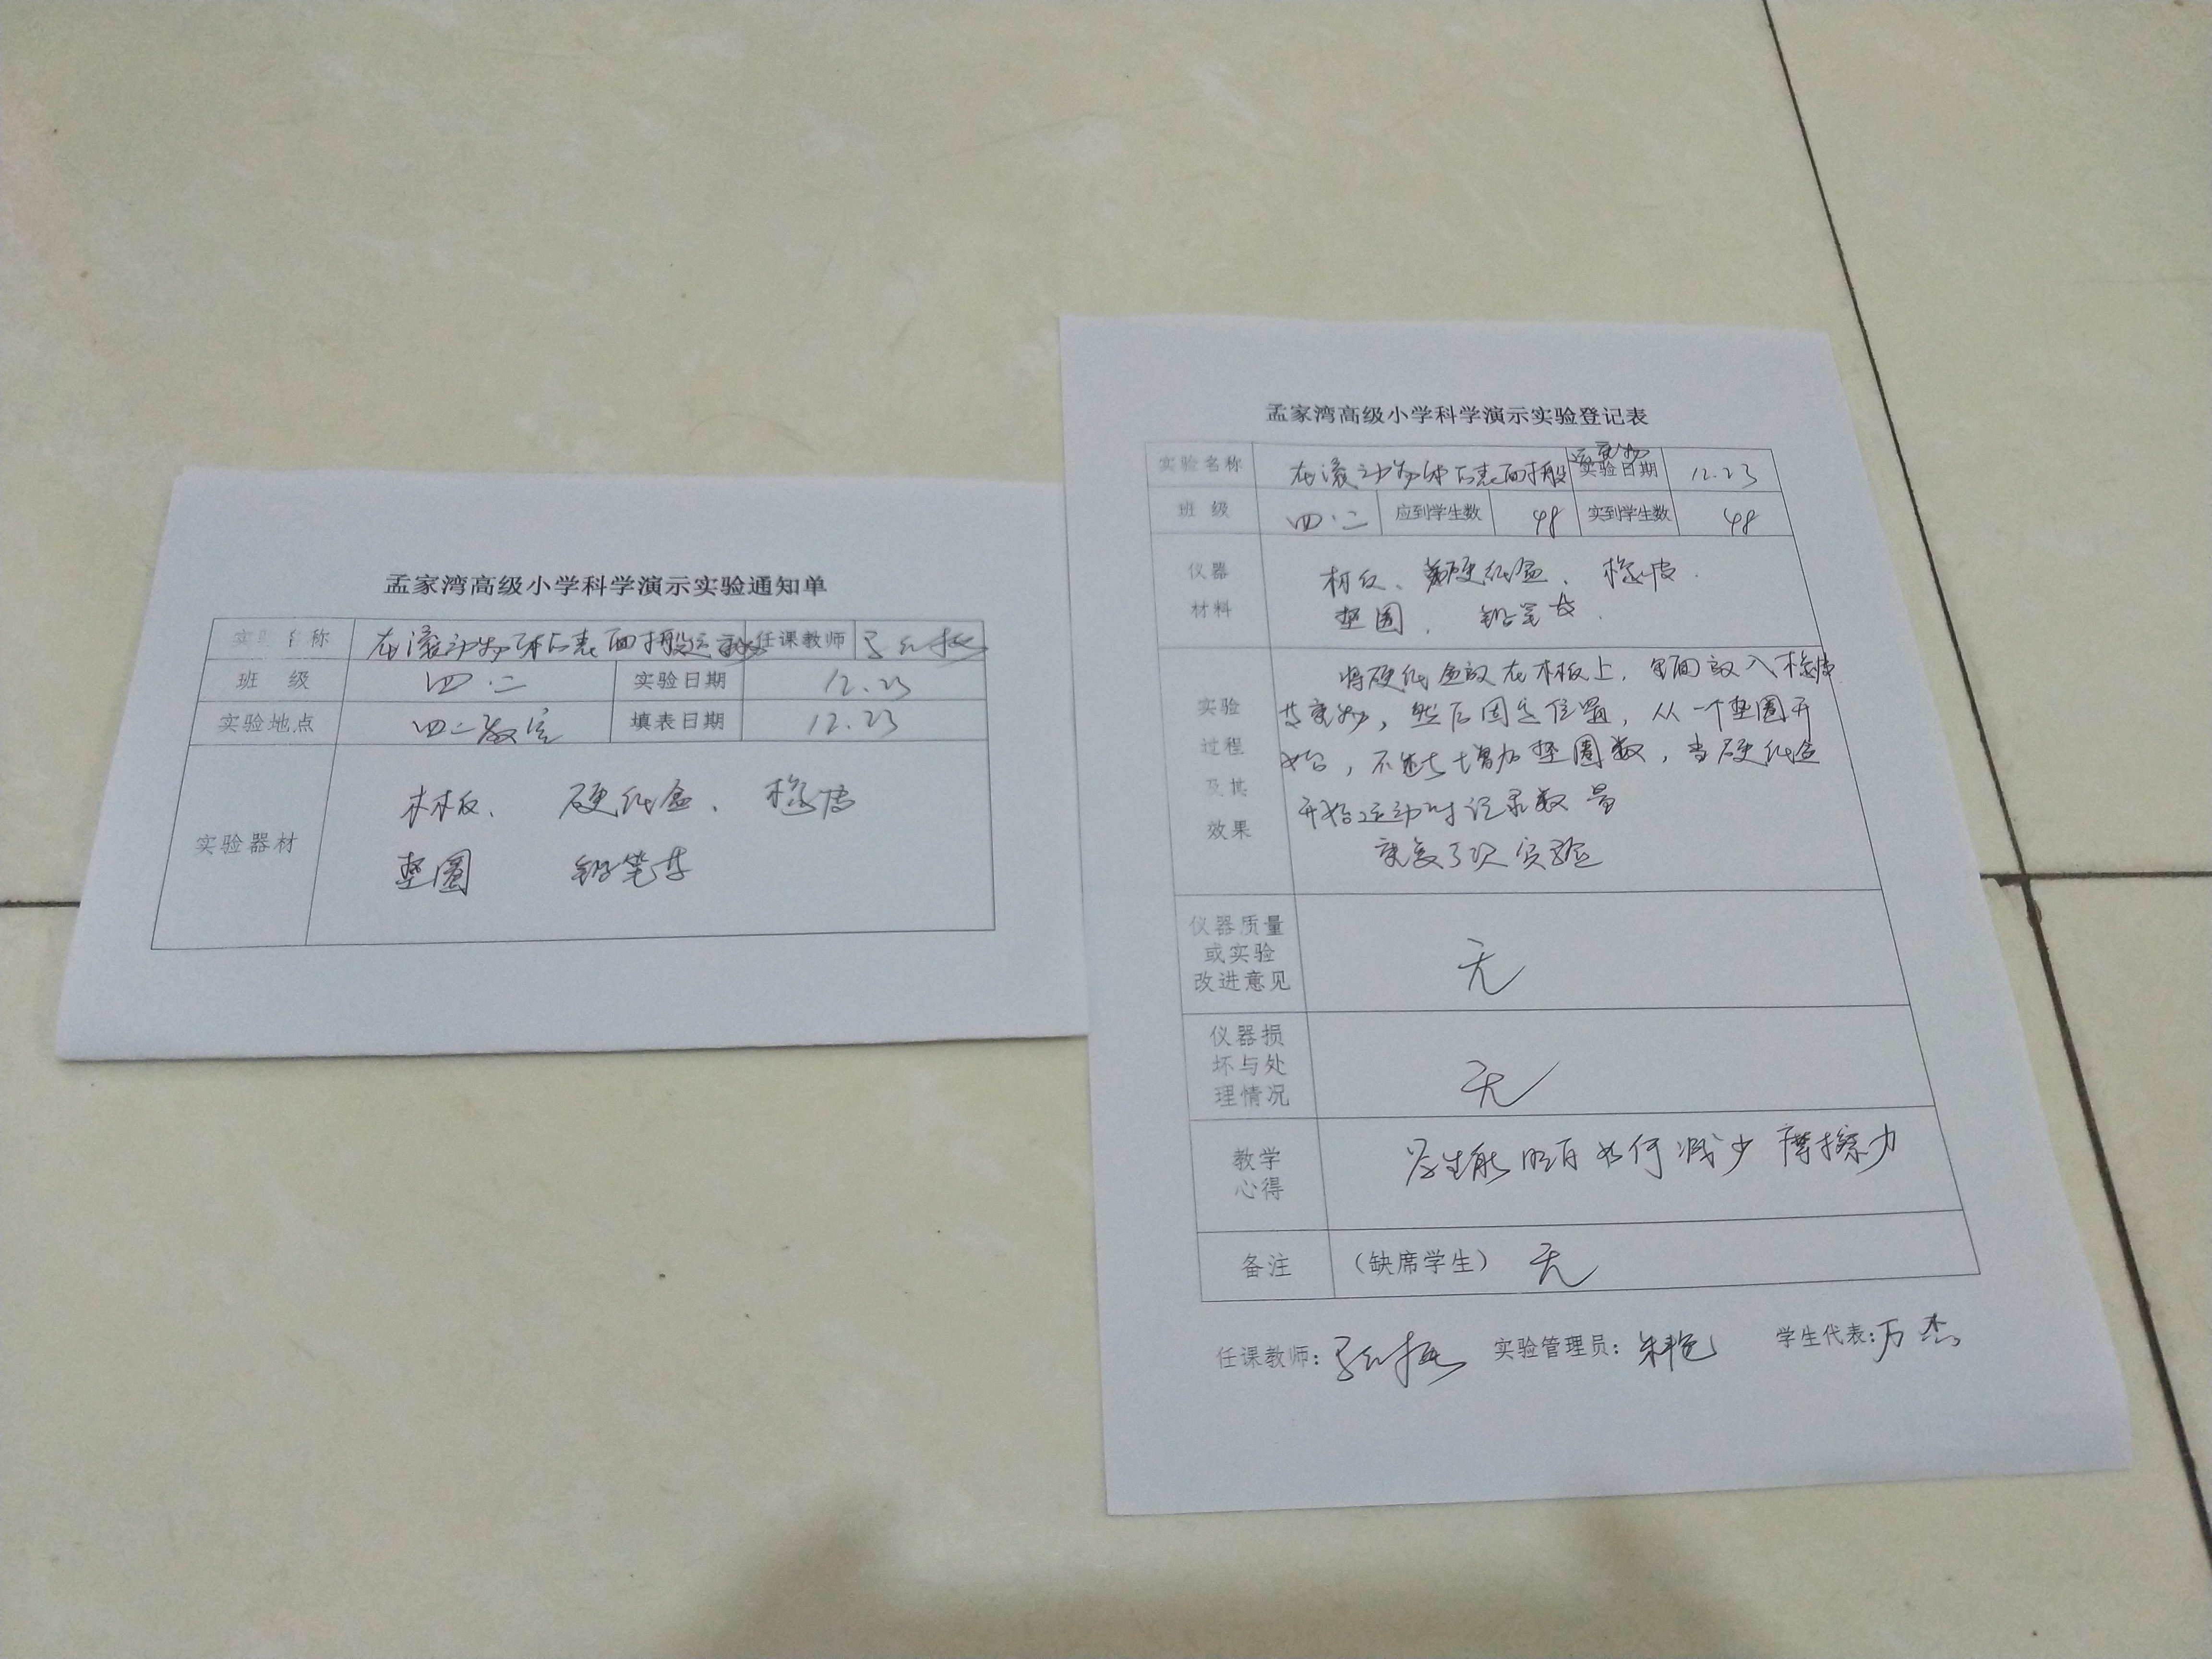 孟家湾高级小学科学演示实验通知单
实验名称 在滚动物体与表面搬运重物 任课教师
班 级 四.二 实验日期 12.23
实验地点 四二教室 填表日期 12.23
实验器材
木板、 硬纸盒、 橡皮
垫圈 铅笔等
孟家湾高级小学科学演示实验登记表
实验名称 在滚动物体与表面搬运重物 实验日期 12.23
班 级 四.二 应到学生数 48 实到学生数 48
仪器材料
木板、硬纸盒、橡皮.
垫圈. 铅笔等.
实验过程及其效果
将硬纸盒放在木板上,里面放入橡皮
等重物,然后固定位置,从一个垫圈开
始,不断增加垫圈数,当硬纸盒
开始运动时记录数量
重复3次实验
仪器质量或实验改进意见 无
仪器损坏与处理情况 无
教学心得 学生能明白如何减少摩擦力
备注 (缺席学生) 无
任课教师: 实验管理员: 学生代表:万杰